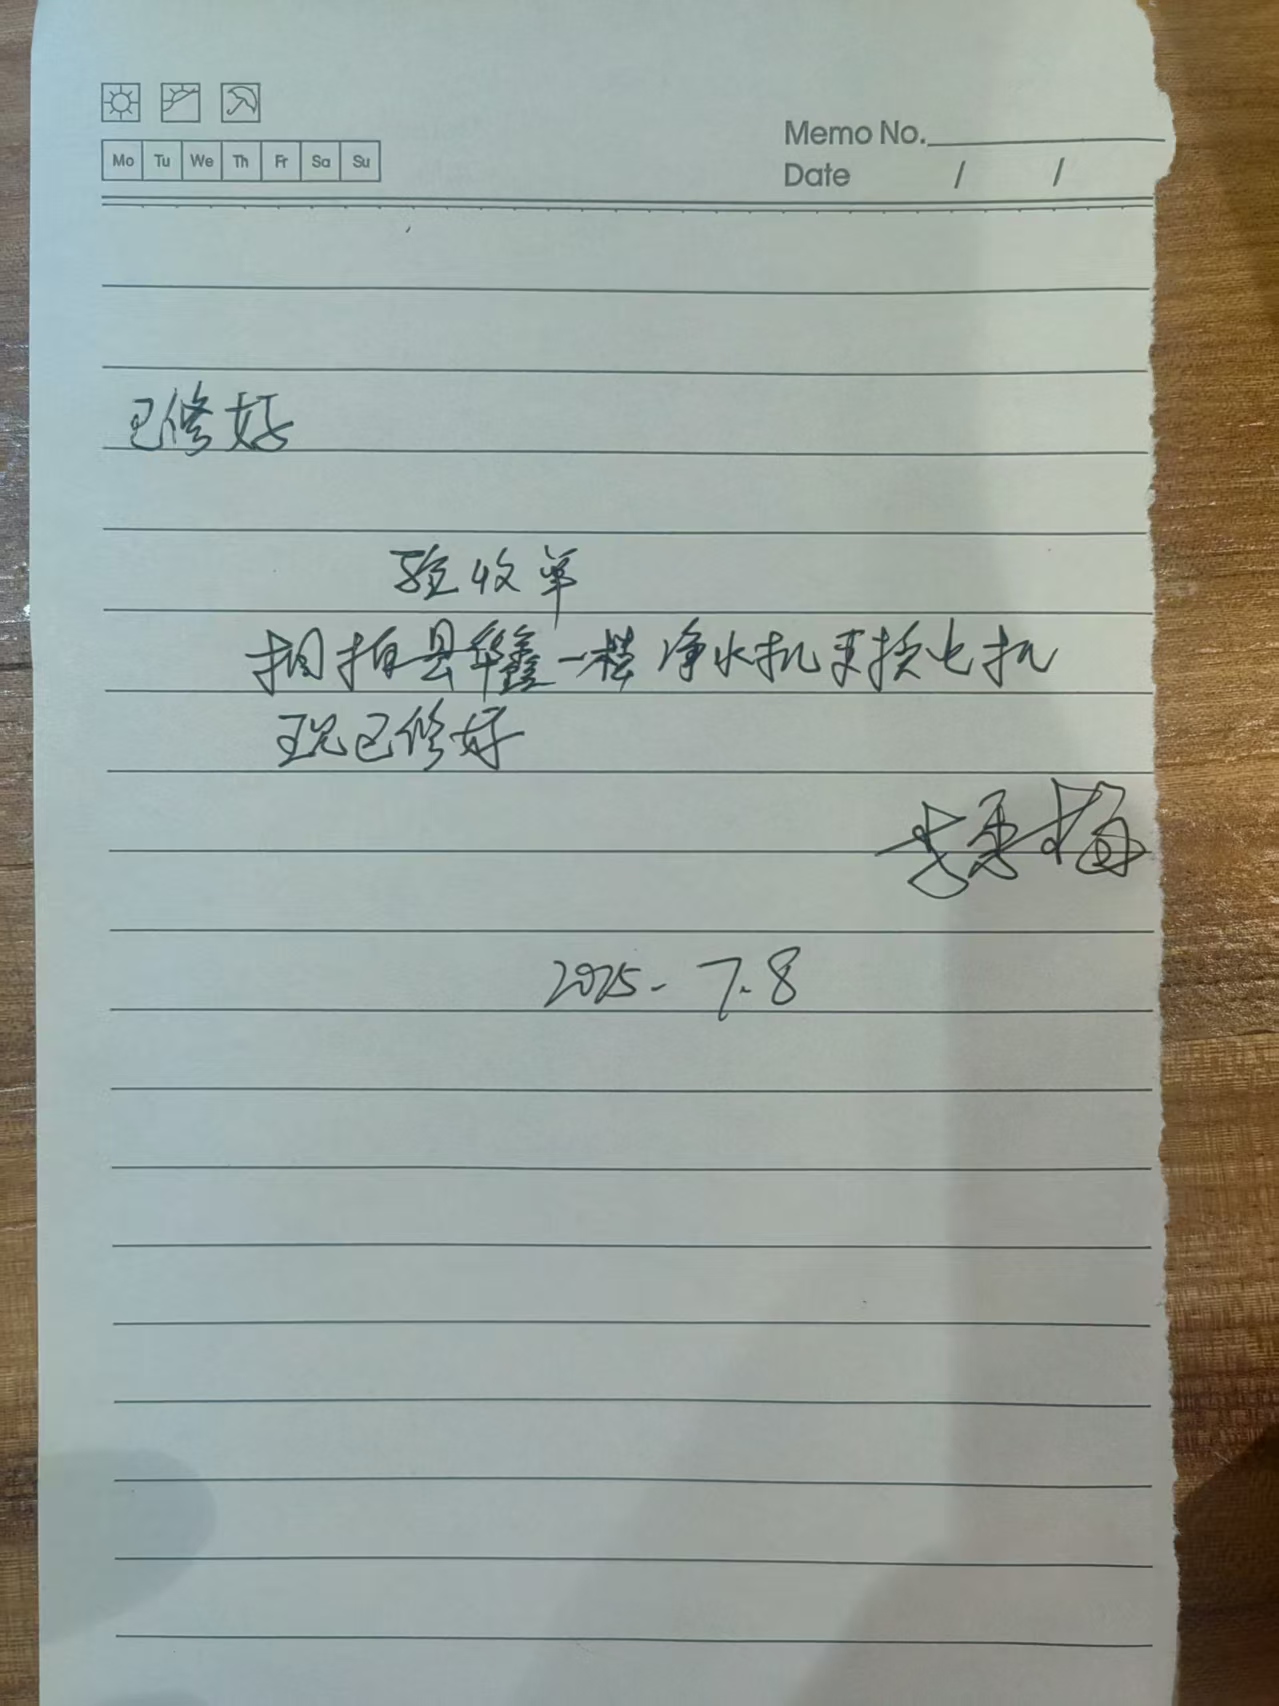 Memo No.
Mo Tu We Th Fr Sa Su
Date / /
已修好
验收单
县华鑫一楼净水机更换电机
现已修好
2025.7.8